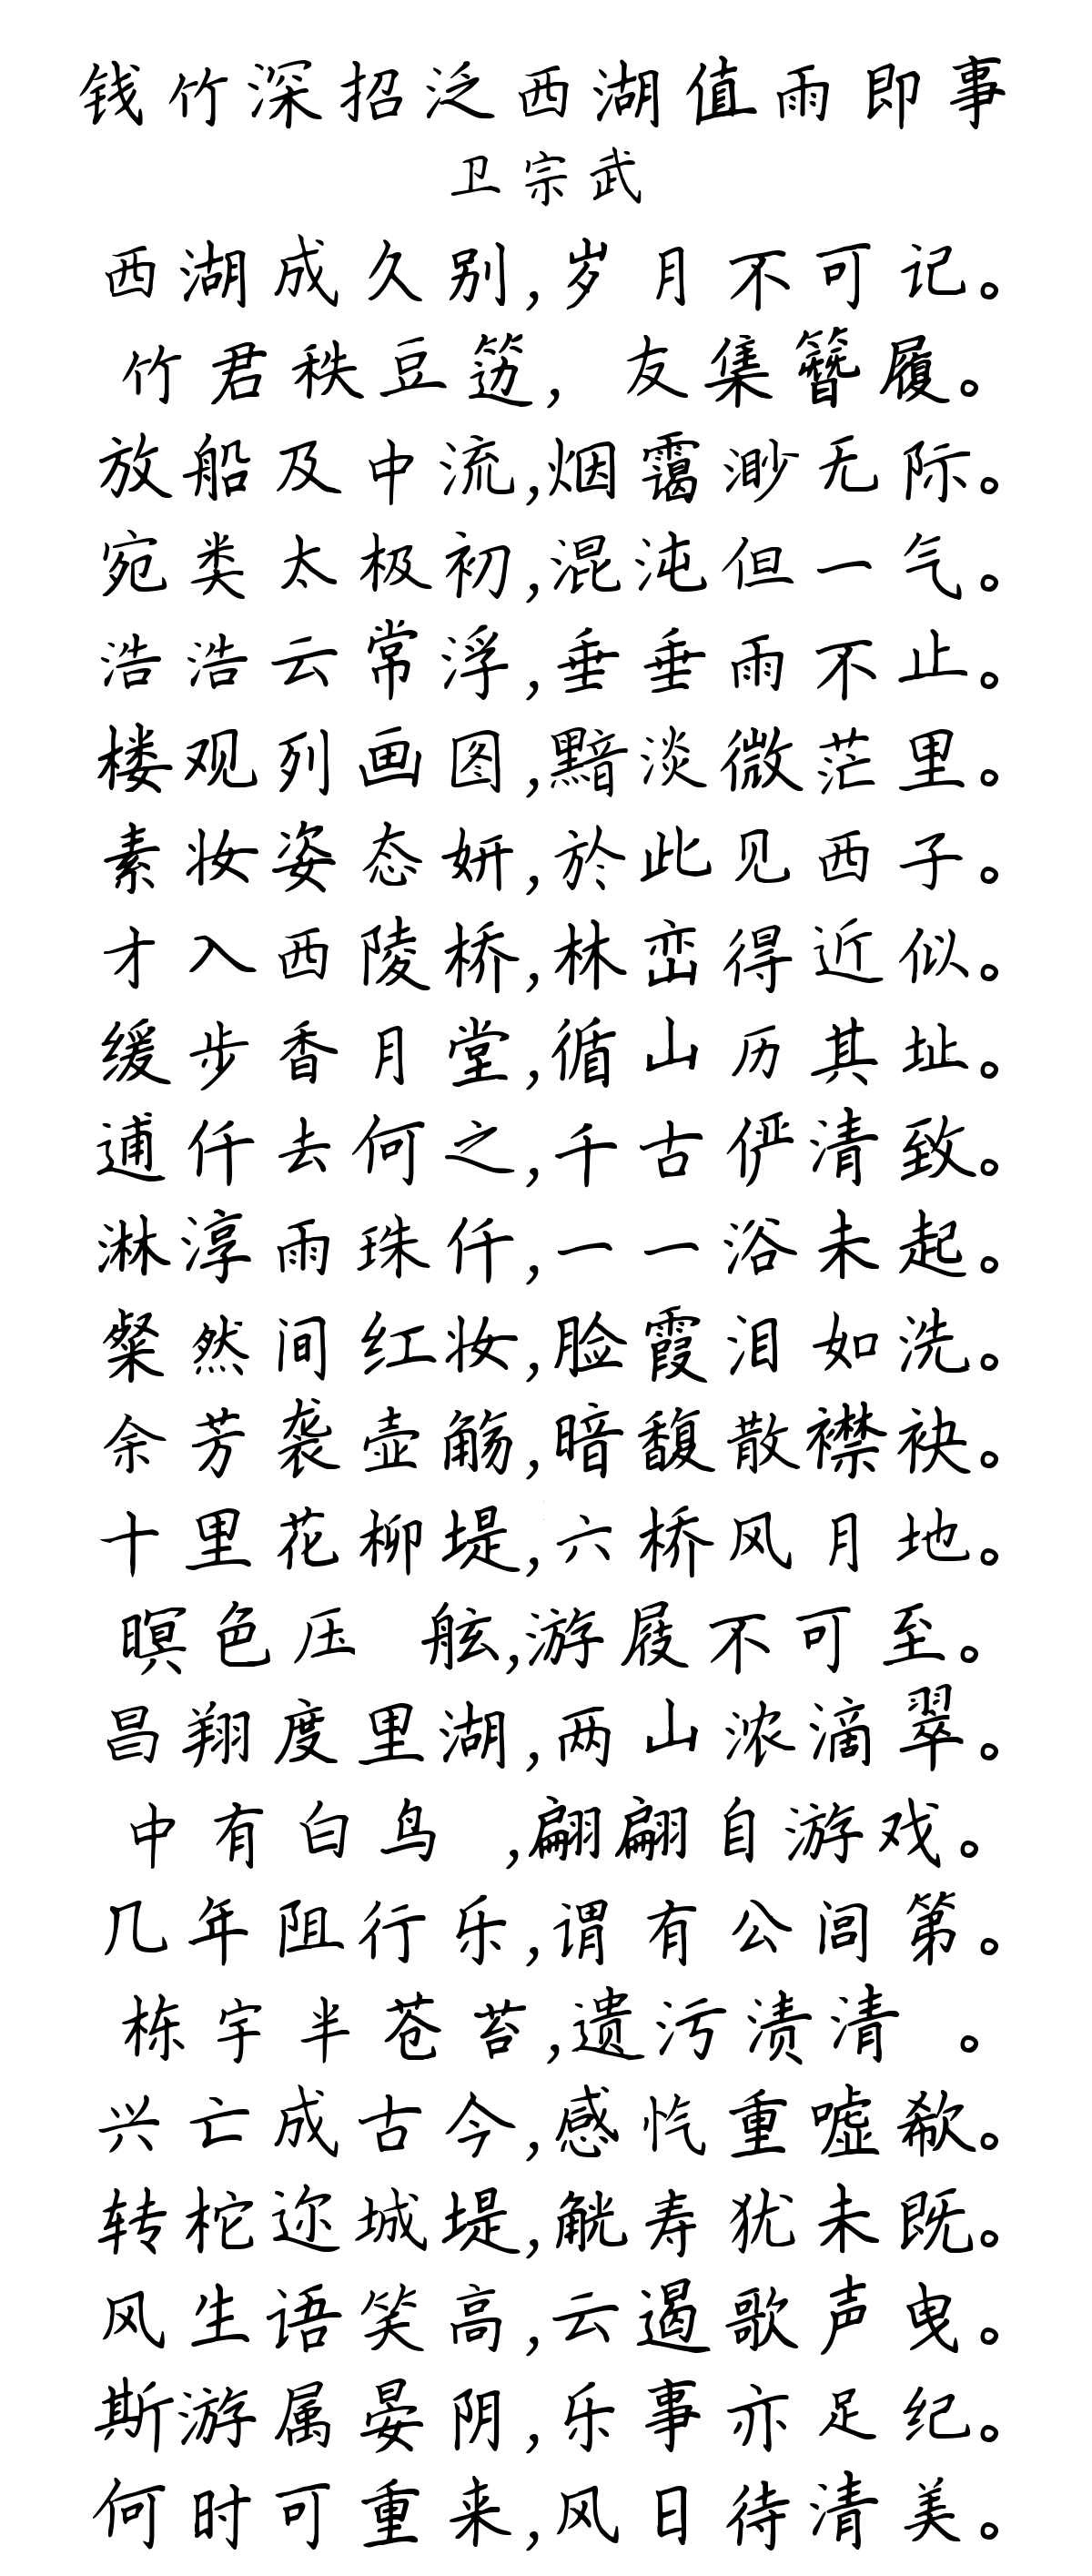 钱竹深招泛西湖值雨即事
卫宗武
西湖成久别,岁月不可记。
竹君秩豆笾,友集簪履。
放船及中流,烟霭渺无际。
宛类太极初,混沌但一气。
浩浩云常浮,垂垂雨不止。
楼观列画图,黯淡微茫里。
素妆姿态妍,於此见西子。
才入西陵桥,林峦得近似。
缓步香月堂,循山历其址。
逋仟去何之,千古俨清致。
淋淳雨珠仟,一一浴未起。
粲然间红妆,脸霞泪如洗。
余芳袭壶觞,暗馥散襟袂。
十里花柳堤,六桥风月地。
暝色压 舷,游屐不可至。
昌翔度里湖,两山浓滴翠。
中有白鸟 ,翩翩自游戏。
几年阻行乐,谓有公闾第。
栋宇半苍苔,遗污渍清 。
兴亡成古今,感忾重嘘欷。
转柁迩城堤,觥寿犹未既。
风生语笑高,云遏歌声曳。
斯游属晏阴,乐事亦足纪。
何时可重来,风日待清美。